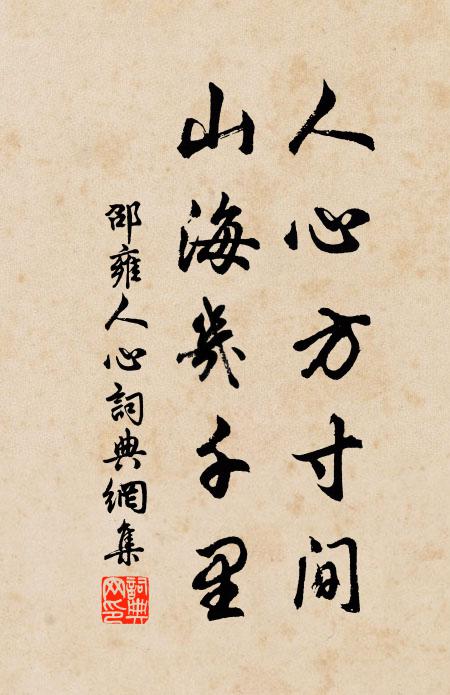 人心方寸間
山海幾千里
邵雍人心詞典網集
詞典